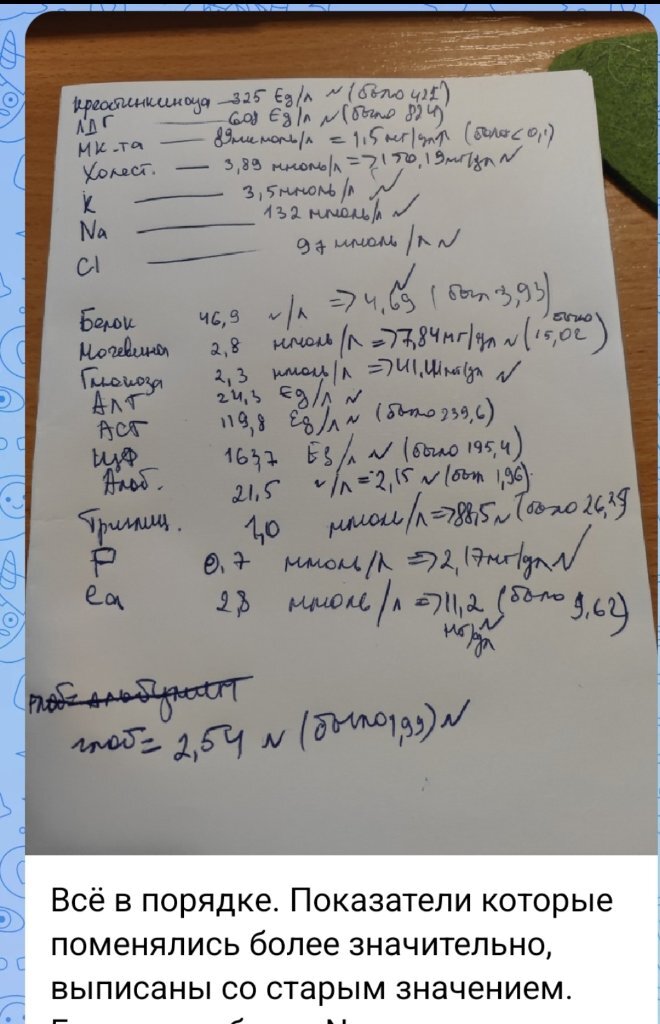 креатинкиназа — 325 Ед/л N (было 421)
ЛДГ — 608 Ед/л N (было 824)
МК-та — 89 мкмоль/л = 1,5 мг/дл (было < 0,1)
Холест. — 3,89 ммоль/л => 150,19 мг/дл N
K — 3,5 ммоль/л ✓
Na — 132 ммоль/л ✓
Cl — 97 ммоль/л N
Белок 46,9 г/л => 4,69 (был 3,93)
Мочевина 2,8 ммоль/л => 7,84 мг/дл N (было 15,02)
Глюкоза 2,3 ммоль/л => 41,44 мг/дл N
АЛТ 24,3 Ед/л N
АСТ 119,8 Ед/л N (было 239,6)
ЩФ 163,7 Ед/л N (было 195,4)
Альб. 21,5 г/л = 2,15 N (был 1,96)
Триглиц. 1,0 ммоль/л => 88,5 N (было 26,29)
P 0,7 ммоль/л => 2,17 мг/дл N
Ca 2,8 ммоль/л => 11,2 (было 9,62)
мг/дл N
глоб = 2,54 N (было 1,99) N
Всё в порядке. Показатели которые
поменялись более значительно,
выписаны со старым значением.